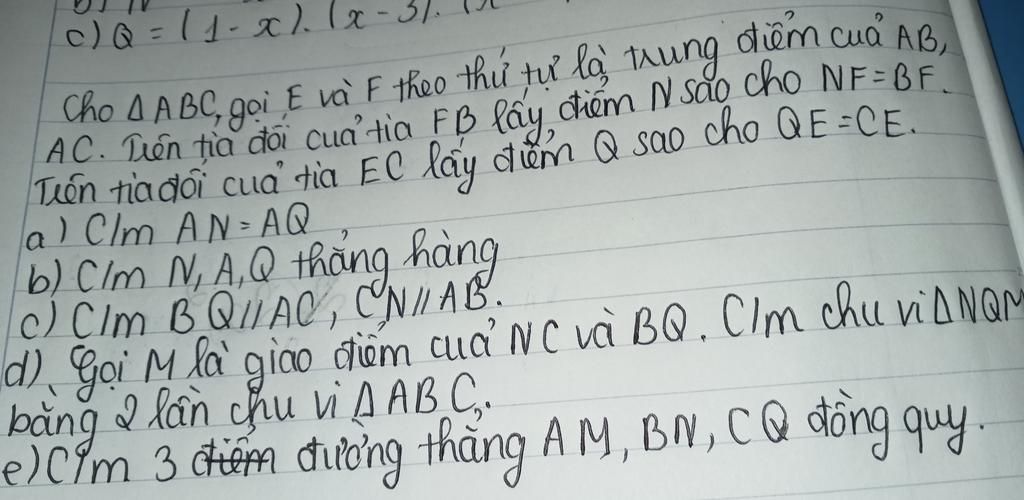 c) Q = (1 - x). (x - 3).
Cho Δ ABC, gọi E và F theo thứ tự là trung điểm cuả AB,
AC. Trên tia đối cuả tia FB lấy điểm N sao cho NF = BF.
Trên tia đối cuả tia EC lấy điểm Q sao cho QE = CE.
a) C/m AN = AQ
b) C/m N, A, Q thẳng hàng
c) C/m BQ // AC, CN // AB.
d) Gọi M là giao điểm cuả NC và BQ. C/m chu vi Δ NQM
bằng 2 lần chu vi Δ ABC.
e) C/m 3 điểm đường thẳng AM, BN, CQ đồng quy.